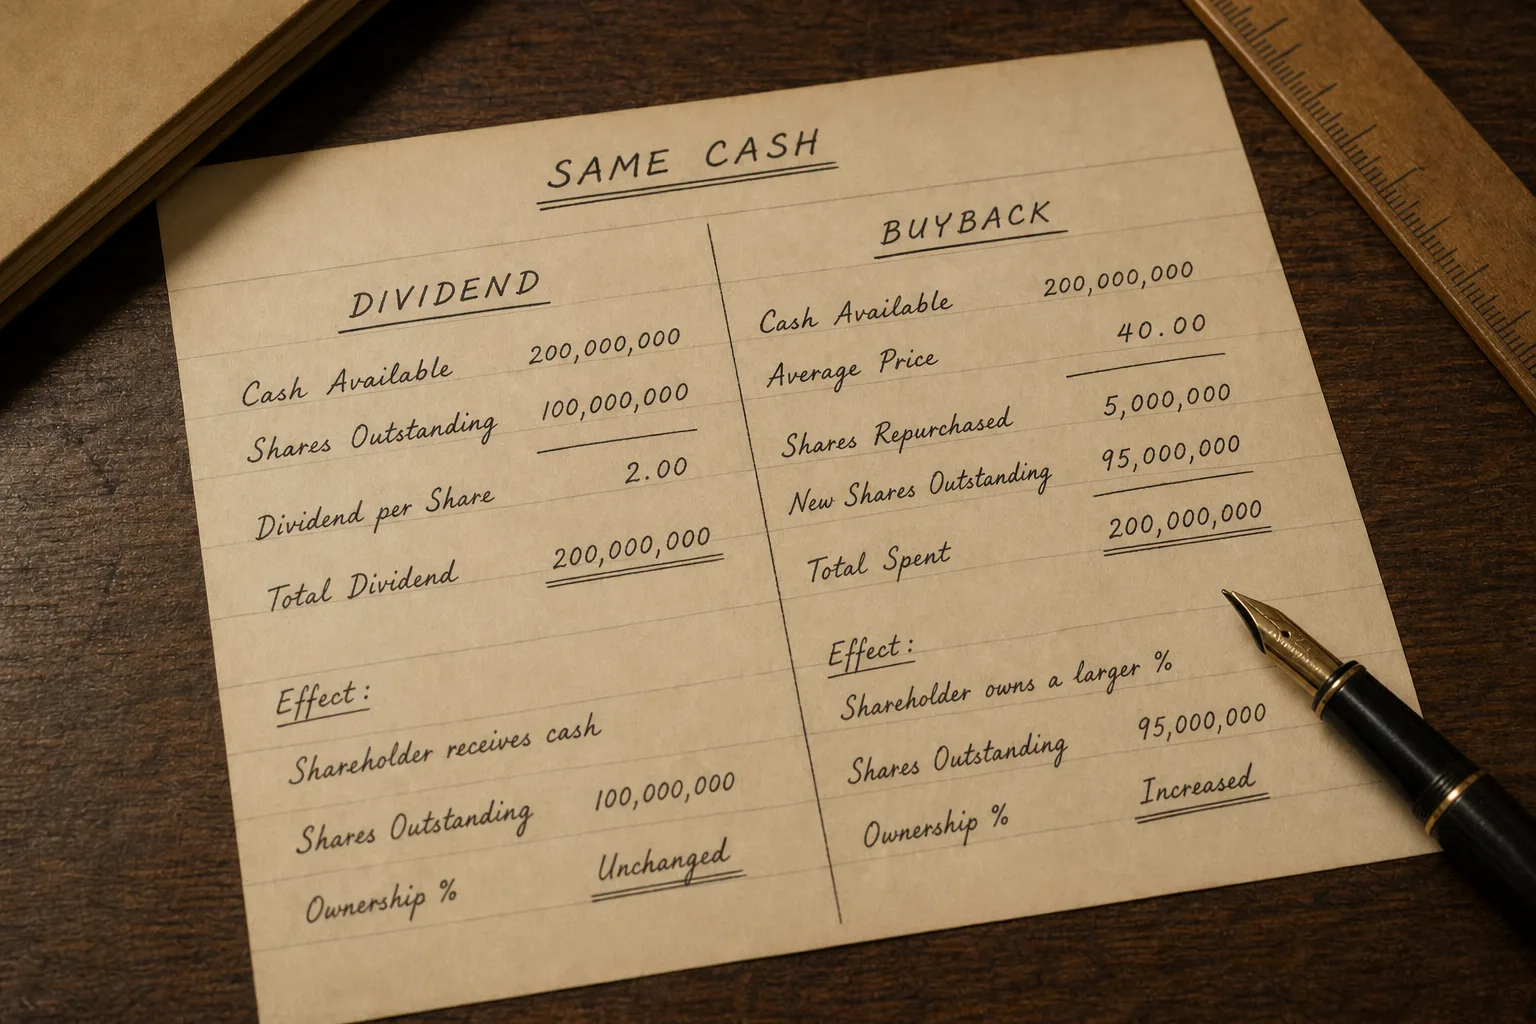 SAME CASH
DIVIDEND
Cash Available 200,000,000
Shares Outstanding 100,000,000
Dividend per Share 2.00
Total Dividend 200,000,000
Effect:
Shareholder receives cash
Shares Outstanding 100,000,000
Ownership % Unchanged
BUYBACK
Cash Available 200,000,000
Average Price 40.00
Shares Repurchased 5,000,000
New Shares Outstanding 95,000,000
Total Spent 200,000,000
Effect:
Shareholder owns a larger %
Shares Outstanding 95,000,000
Ownership % Increased